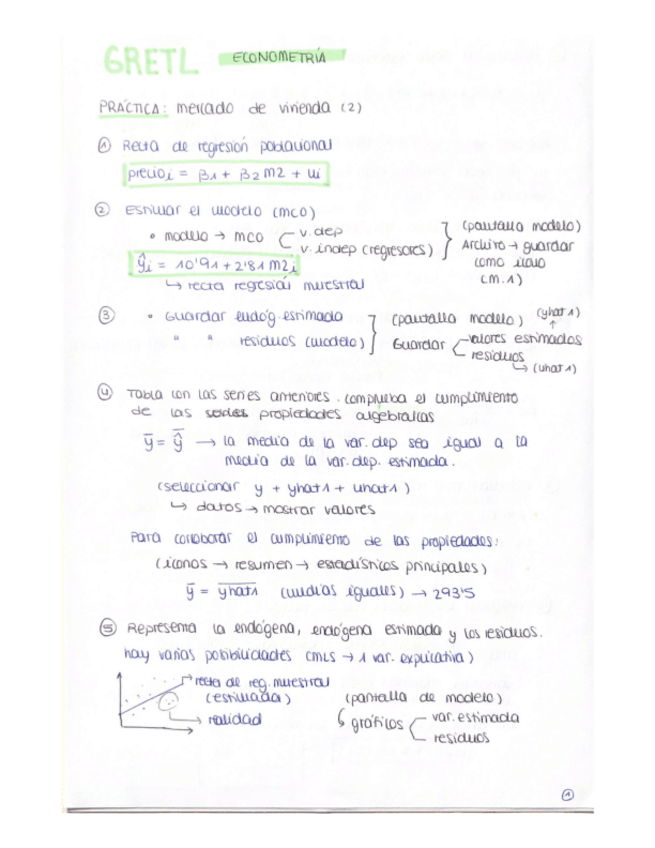 GRETL ECONOMETRÍA
PRÁCTICA: mercado de vivienda (2)
① Recta de regresión poblacional
precioi = β1 + β2 m2 + ui
② Estimar el modelo (MCO)
• modelo → MCO < v. dep
v. indep (regresores)
} (pantalla modelo)
Archivo → guardar
como icono
(m.1)
ŷi = 10'91 + 2'81 m2i
↳ recta regresión muestral
③ • Guardar endóg. estimado
" " residuos (modelo)
} (pantalla modelo) (yhat1)
Guardar < valores estimados
residuos
↳ (uhat1)
④ Tabla con las series anteriores. comprueba el cumplimiento
de las series propiedades algebraicas
ȳ = ŷ̄ → la media de la var. dep sea igual a la
media de la var. dep. estimada.
(seleccionar y + yhat1 + uhat1)
↳ datos → mostrar valores
Para corroborar el cumplimiento de las propiedades:
(iconos → resumen → estadísticos principales)
ȳ = yhat1 (medias iguales) → 293'5
⑤ Representa la endógena, endógena estimada y los residuos.
hay varias posibilidades (MLS → 1 var. explicativa)
→ recta de reg. muestral
(estimada)
→ realidad
(pantalla de modelo)
↳ gráficos < var. estimada
residuos
①